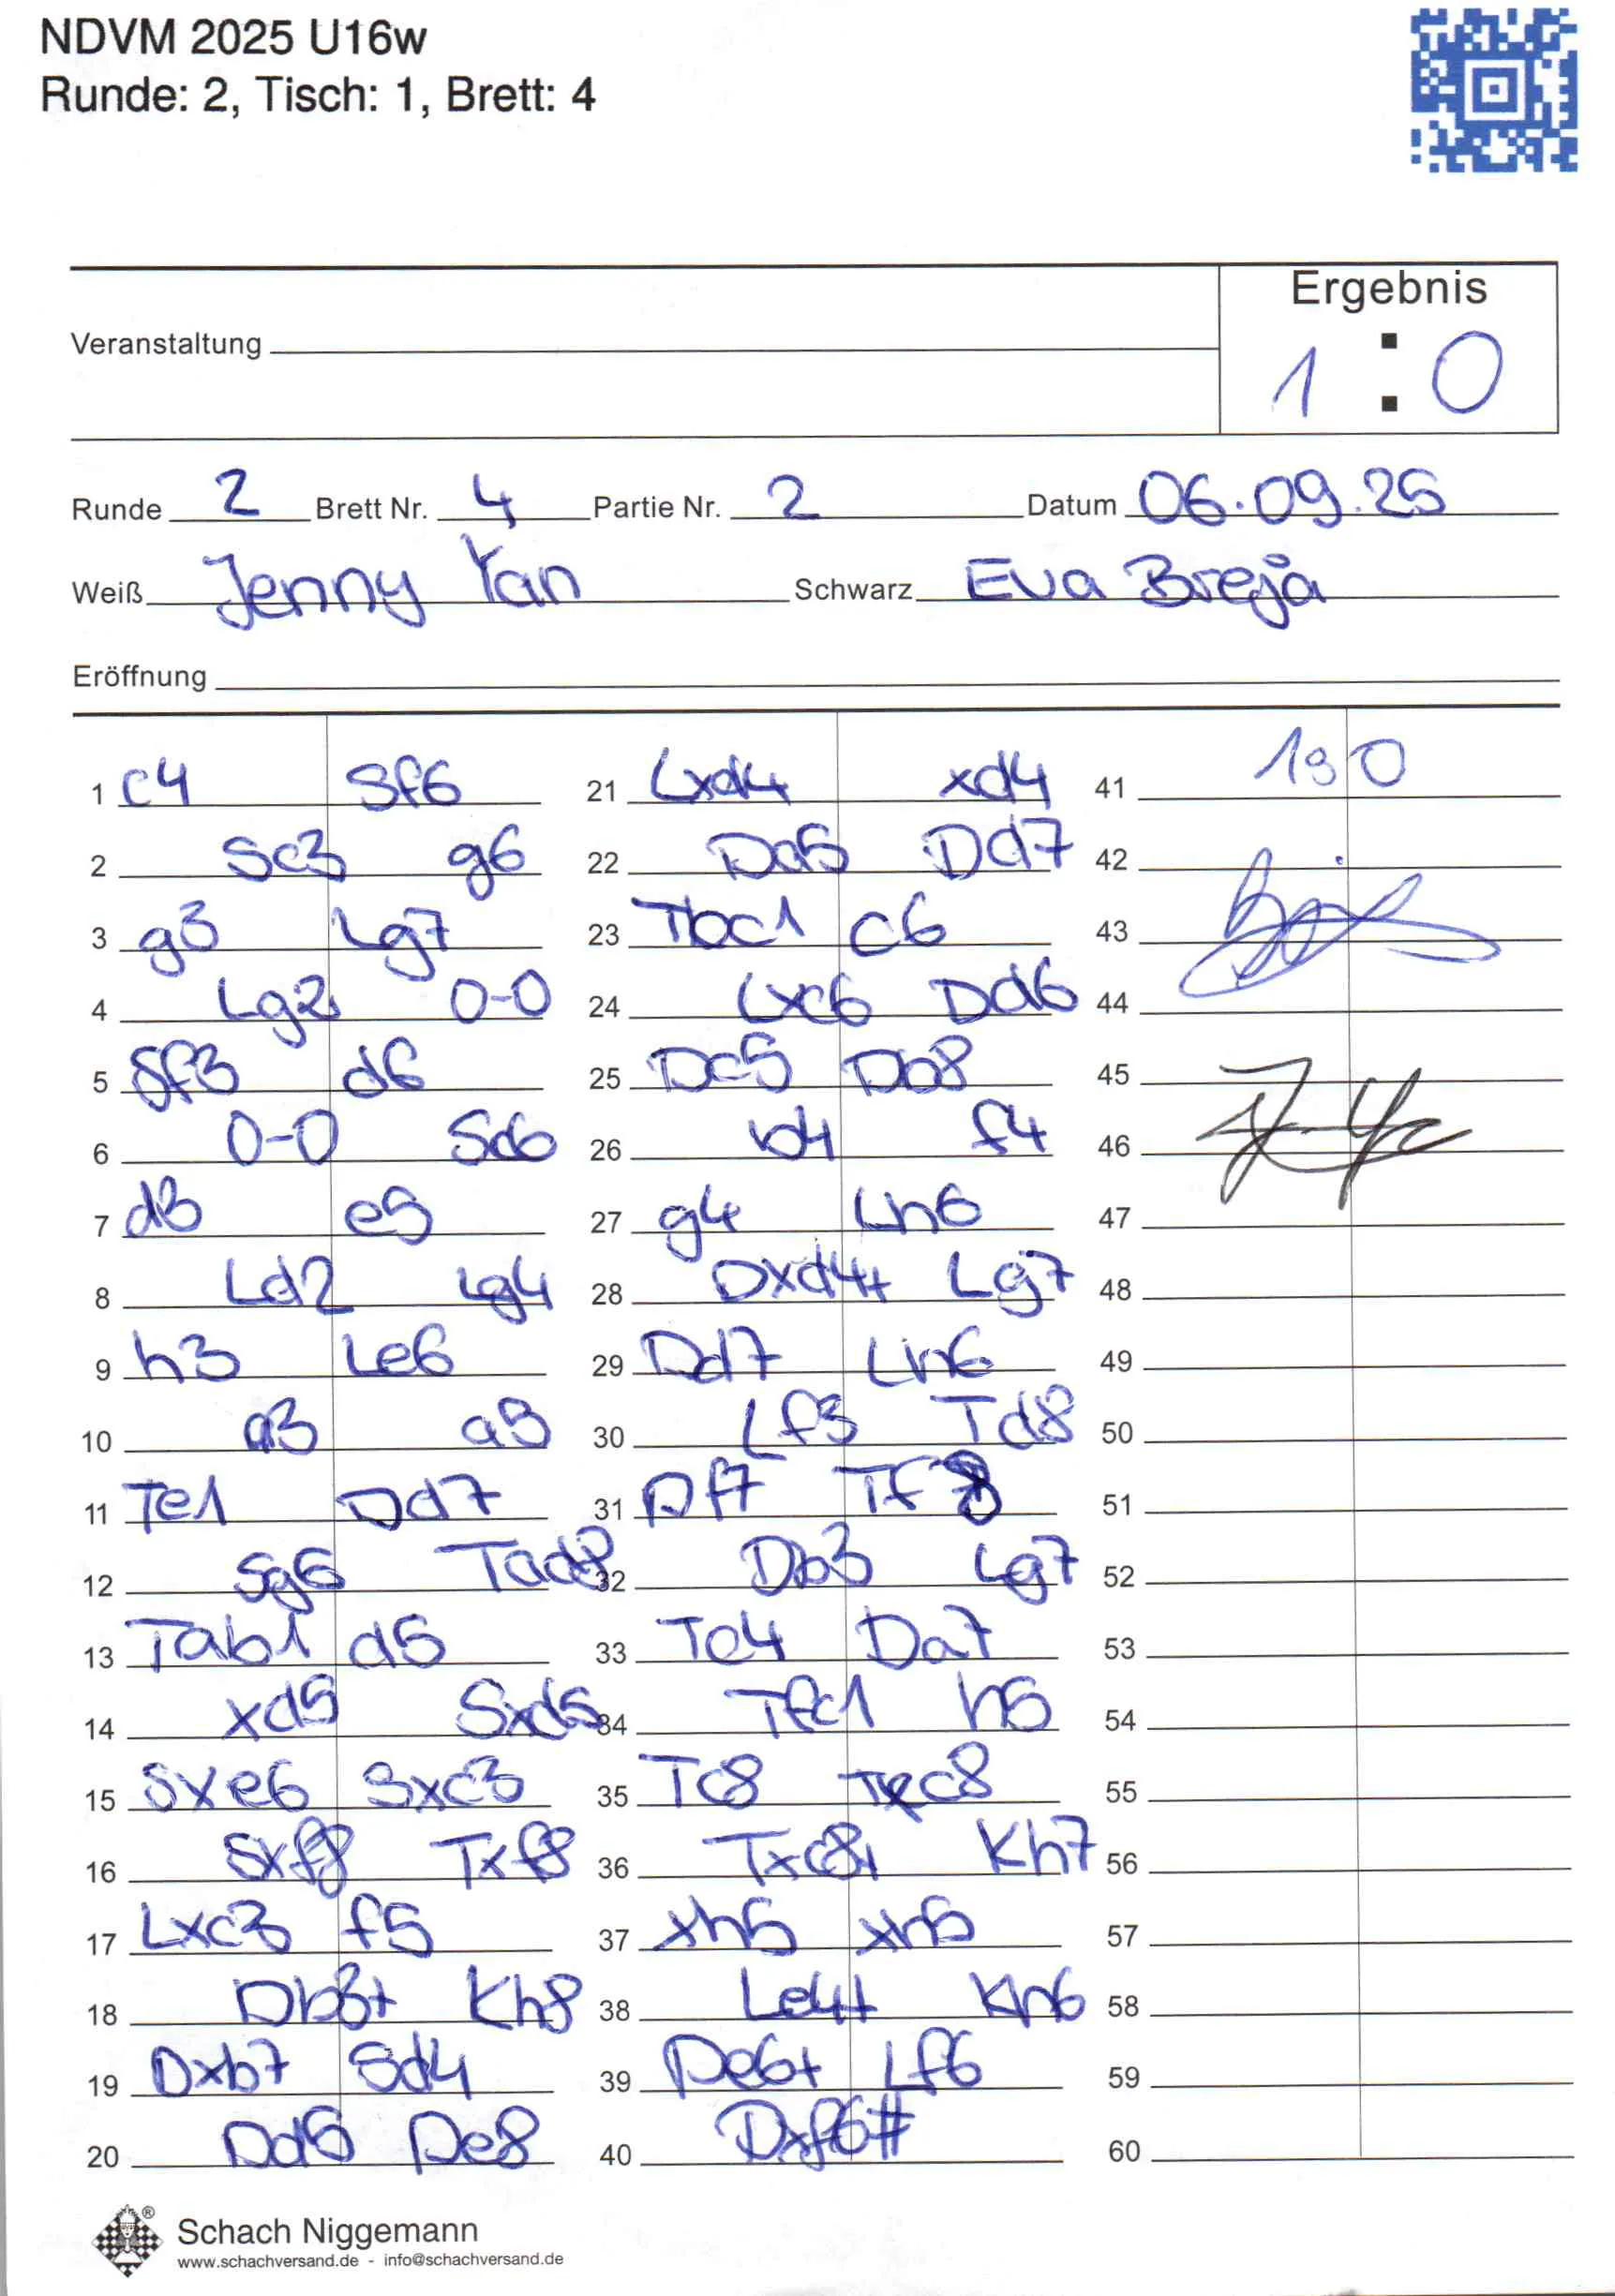 NDVM 2025 U16w
Runde: 2, Tisch: 1, Brett: 4
Ergebnis
Veranstaltung
1 : 0
Runde 2 Brett Nr. 4 Partie Nr. 2 Datum 06.09.25
Weiß Jenny Yan Schwarz Eva Breja
Eröffnung
1 c4 Sf6 21 Lxd4 xd4 41 1:0
2 Sc3 g6 22 Dd5 Dd7 42
3 g3 Lg7 23 Tbc1 c6 43
4 Lg2 0-0 24 Lxc6 Dd6 44
5 Sf3 d6 25 Dc5 Db8 45
6 0-0 Sc6 26 b4 f4 46
7 d3 e5 27 g4 Lh6 47
8 Ld2 Lg4 28 Dxd4+ Lg7 48
9 h3 Le6 29 Dd7 Lh6 49
10 a3 a5 30 Lf3 Td8 50
11 Te1 Dd7 31 Df7 Tf8 51
12 Sg5 Tad8 32 Db3 Lg7 52
13 Tab1 d5 33 Tc4 Da7 53
14 xd5 Sxd5 34 Tfc1 h5 54
15 Sxe6 Sxc3 35 Tc8 Txc8 55
16 Sxf8 Txf8 36 Txc8+ Kh7 56
17 Lxc3 f5 37 xh5 xh5 57
18 Db3+ Kh8 38 Le4+ Kh6 58
19 Dxb7 Sd4 39 De6+ Lf6 59
20 Dd5 De8 40 Dxf6# 60
Schach Niggemann
www.schachversand.de - info@schachversand.de